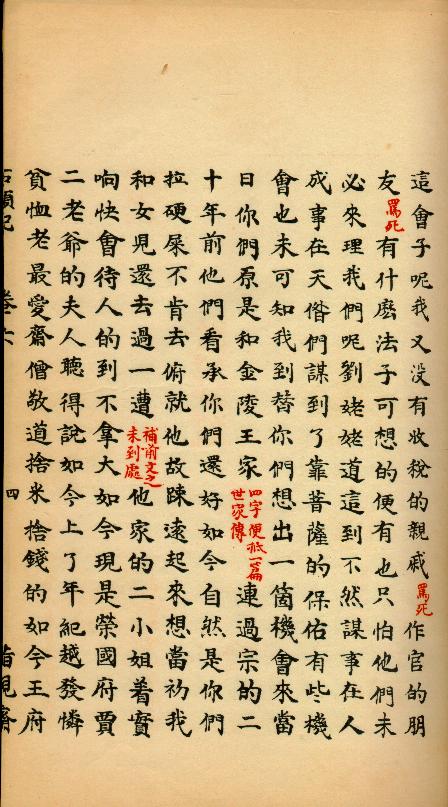 這會子呢我又沒有收稅的親戚罵死作官的朋
友罵死有什庅法子可想的便有也只怕他們未
必來理我們呢劉姥姥道這到不然謀事在人
成事在天偺們謀到了靠菩薩的保佑有些机
會也未可知我到替你們想出一箇機會來當
日你們原是和金陵王家四字便抵一篇世家傳連過宗的二
十年前他們看承你們還好如今自然是你們
拉硬屎不肯去俯就他故踈遠起來想當初我
和女兒還去過一遭補前文之未到處他家的二小姐着實
响快會待人的到不拿大如今現是榮國府賈
二老爺的夫人聽得說如今上了年紀越發憐
貧恤老最愛齋僧敬道捨米捨錢的如今王府
石頭記 卷六 四